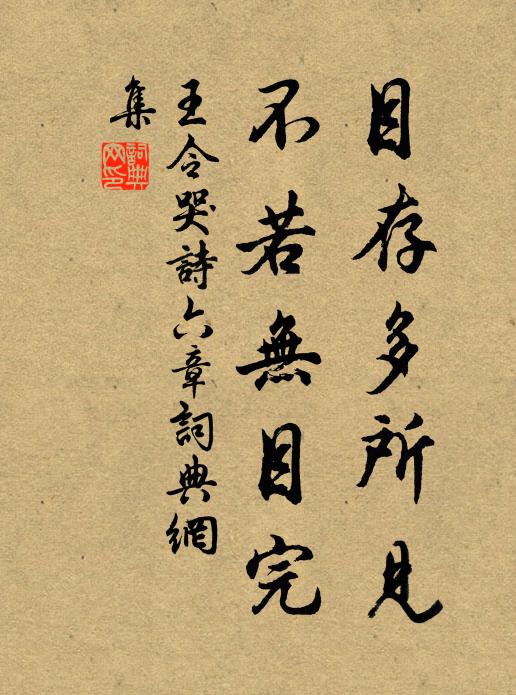 目存多所見
不若無目完
王令哭詩六章詞典網
集
詞典網印